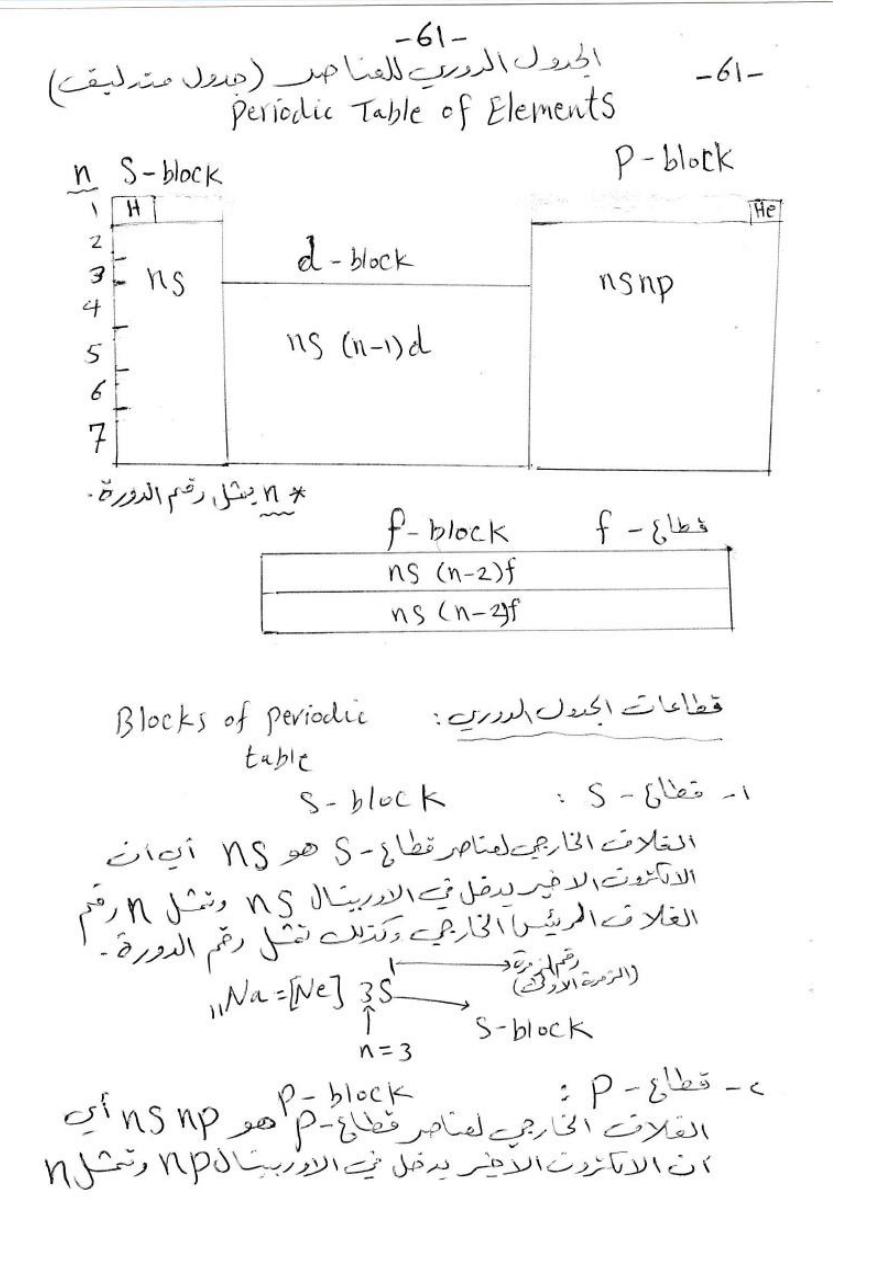 -61-
-61-
الجدول الدوري للعناصر (جدول مندليف)
Periodic Table of Elements
n S-block P-block
1 H He
2
d-block
3 ns nsnp
4
ns (n-1)d
5
6
7
* n يمثل رقم الدورة.
f-block قطاع - f
ns (n-2)f
ns (n-2)f
قطاعات الجدول الدوري: Blocks of periodic
table
١- قطاع - S : S-block
الغلاف الخارجي لعناصر قطاع-S هو ns أي ان
الالكترون الاخير يدخل في الاوربيتال ns وتمثل n رقم
الغلاف الرئيس الخارجي وكذلك تمثل رقم الدورة.
₁₁Na=[Ne] 3S¹ رقم الزمرة
(الزمرة الاولى)
S-block
n=3
٢- قطاع - P : P-block
الغلاف الخارجي لعناصر قطاع-P هو ns np أي
ان الالكترون الاخير يدخل في الاوربيتال np وتمثل n